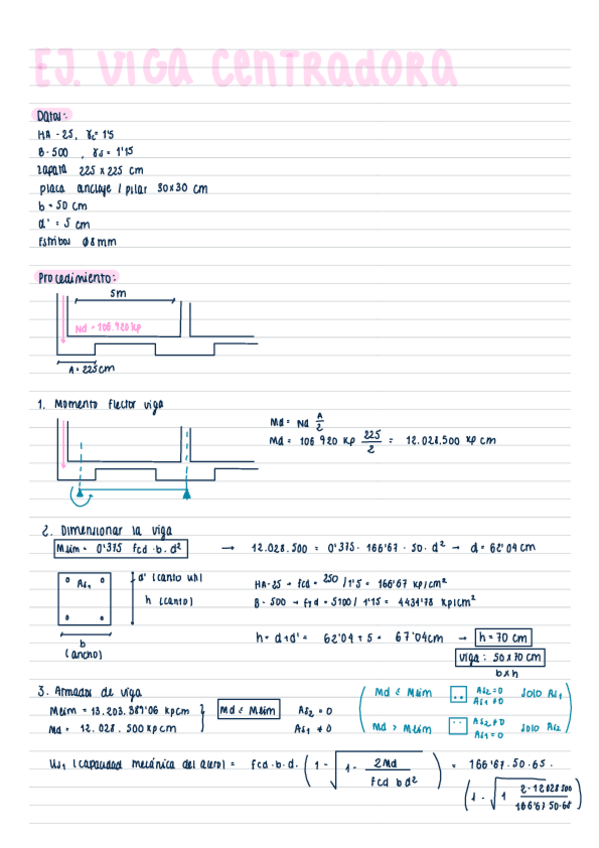 EJ. VIGA CENTRADORA
Datos:
HA-25, γc = 1'5
B-500, γs = 1'15
zapata 225 x 225 cm
placa anclaje / pilar 30x30 cm
b = 50 cm
d' = 5 cm
Estribos Ø8mm
Procedimiento:
5m
Nd = 106.920 Kp
A = 225cm
1. Momento flector viga
Md = Nd A/2
Md = 106 920 Kp 225/2 = 12.028.500 Kp cm
2. Dimensionar la viga
Mlim = 0'375 fcd · b · d² → 12.028.500 = 0'375 · 166'67 · 50 · d² → d = 62'04 cm
d' (canto util)
As1
h (canto)
b (ancho)
HA-25 → fcd = 250 / 1'5 = 166'67 kp/cm²
B-500 → fyd = 5100 / 1'15 = 4434'78 kp/cm²
h = d + d' = 62'04 + 5 = 67'04cm → h = 70 cm
viga: 50 x 70 cm
b x h
3. Armados de viga
Mlim = 13.203.389'06 kp cm
Md = 12.028.500 kp cm
Md ≤ Mlim
As2 = 0
As1 ≠ 0
Md ≤ Mlim As2 = 0 As1 ≠ 0 Solo As1
Md > Mlim As2 ≠ 0 As1 = 0 Solo As2
Us1 (capacidad mecánica del acero) = fcd · b · d · (1 - √(1 - 2Md / fcd b d²)) = 166'67 · 50 · 65 ·
(1 - √(1 2·12028500 / 166'67 · 50 · 65))